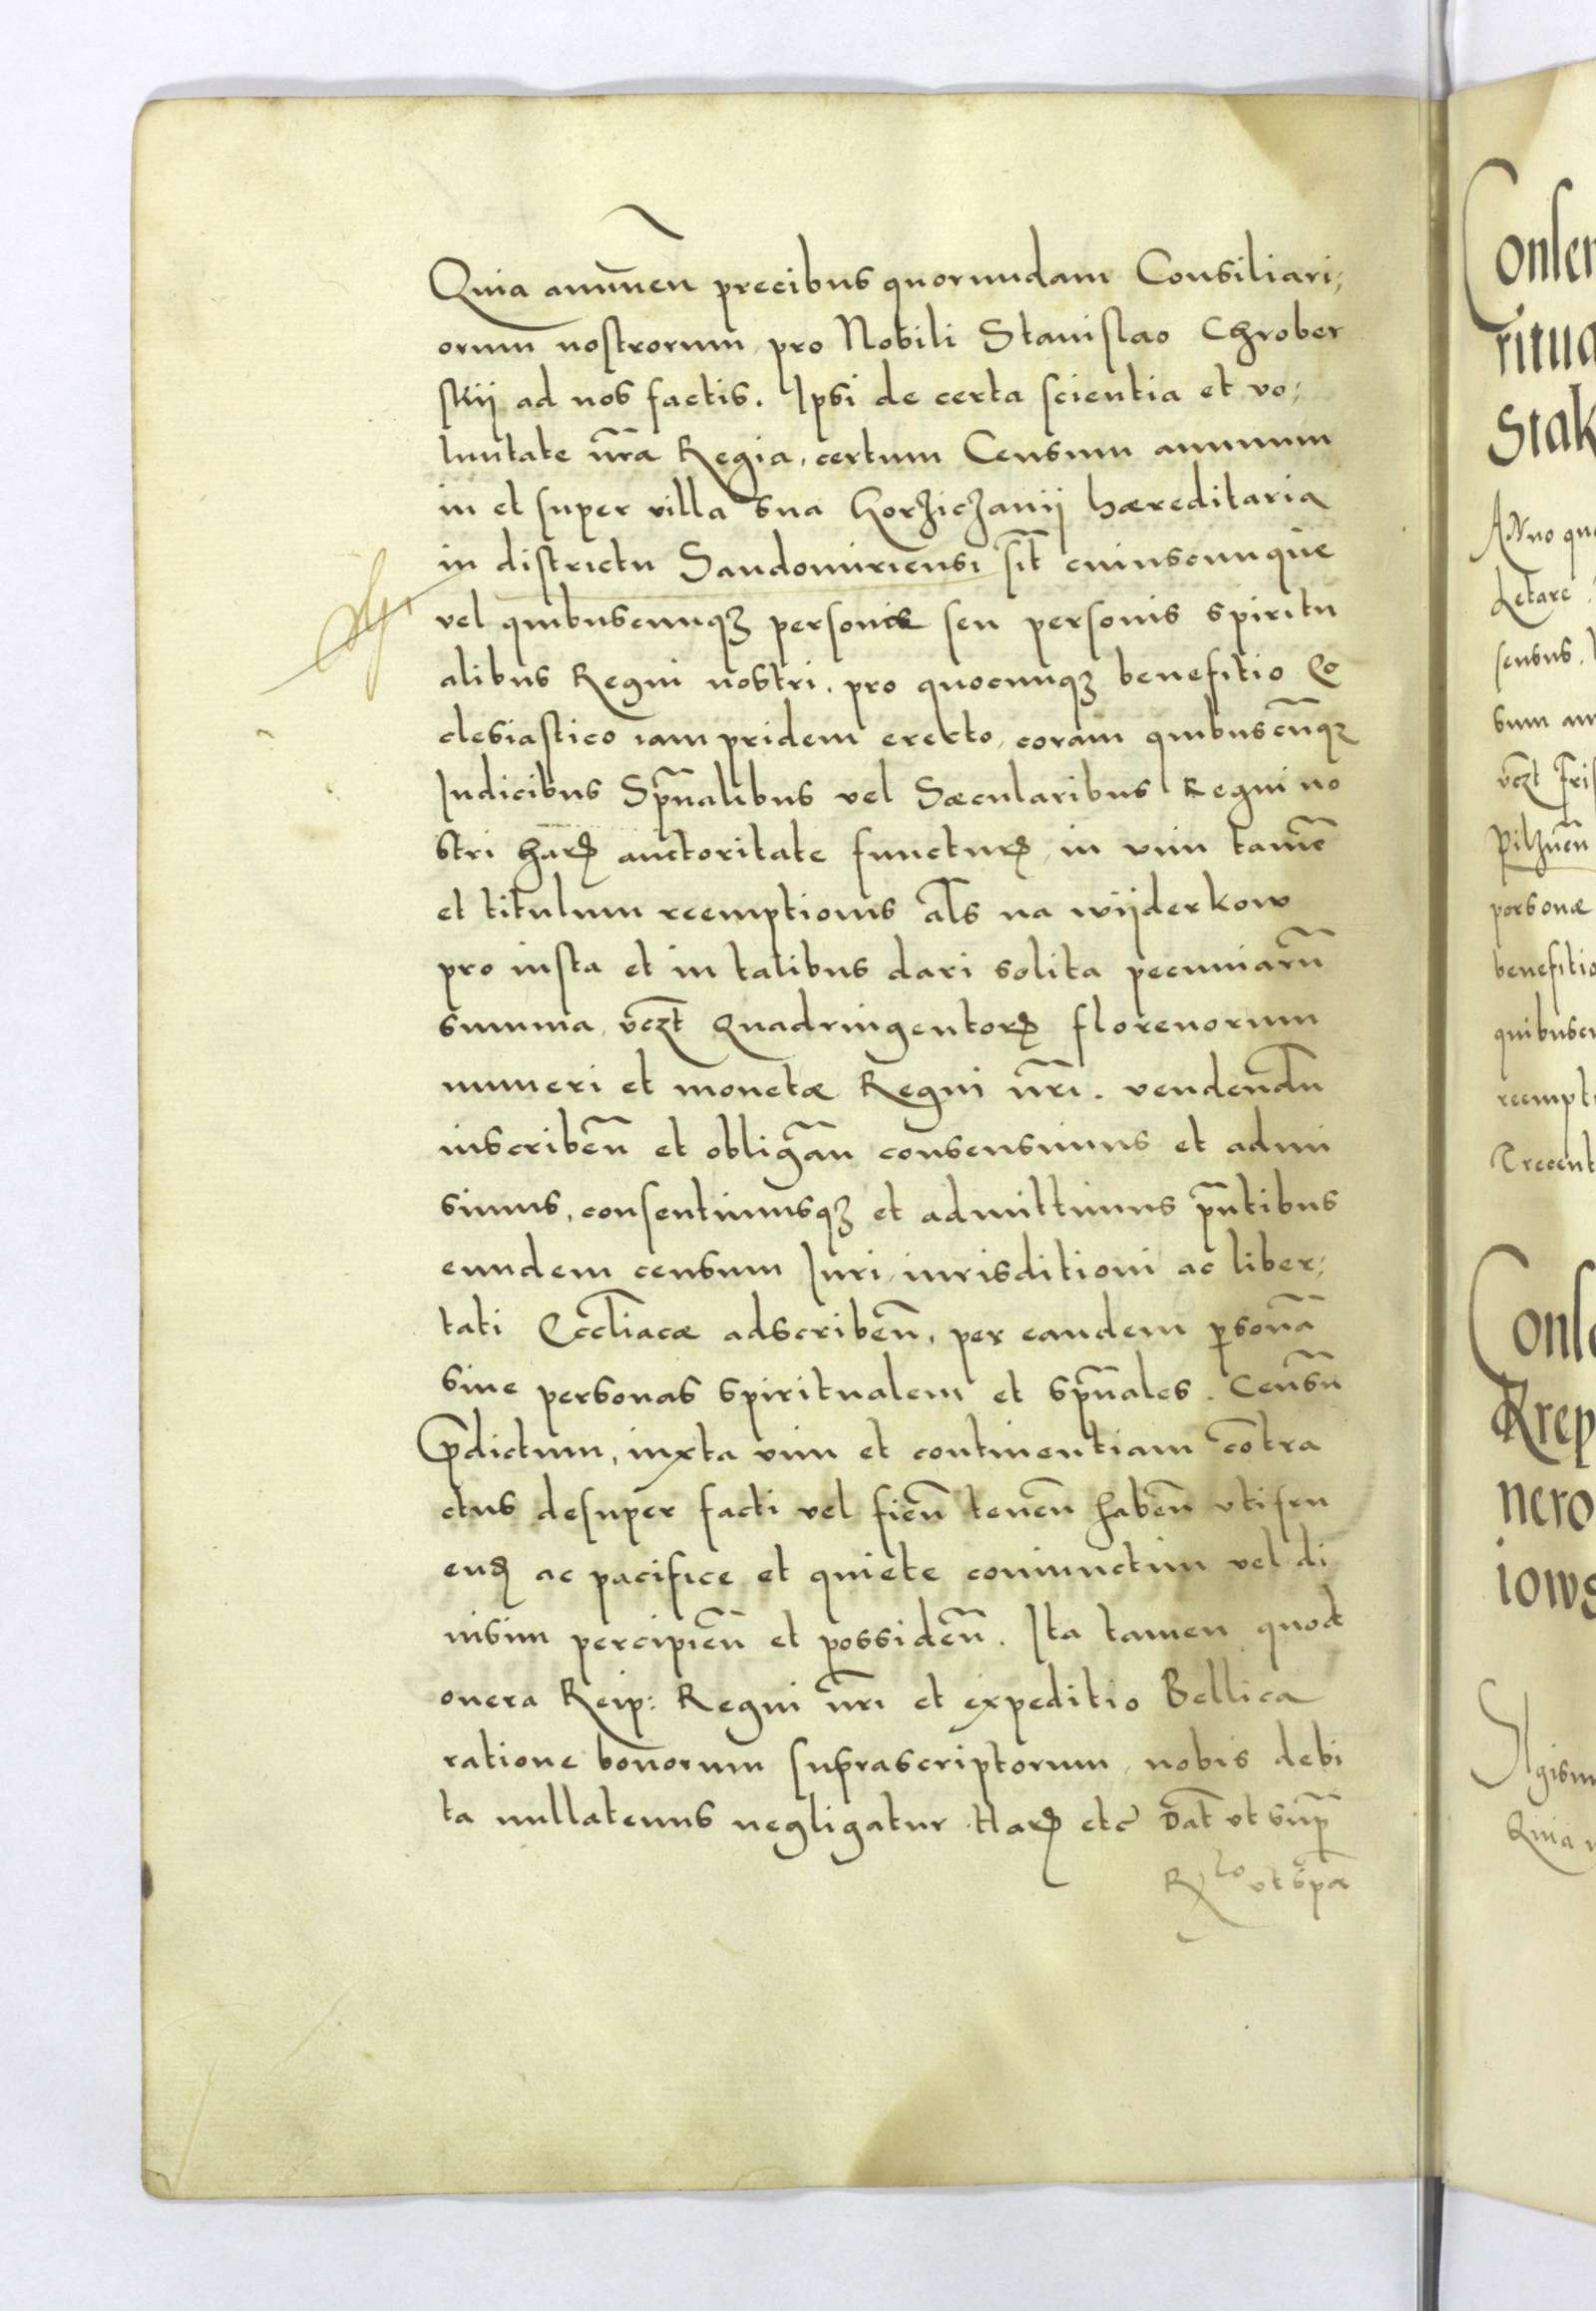 Quia annuen̄ precibus quorundam Consiliari;
orum nostrorum pro Nobili Stanislao Chrober
skij ad nos factis. Ipsi de certa scientia et vo;
luntate nr̄a Regia, certum Censum annuum
in et super villa sua Gorziczanij hæreditaria
in districtu Sandomiriensi sit̄ cuiuscunque
vel quibuscunqꝫ personæ seu personis spiritu
alibus Regni nostri. pro quocunqꝫ benefitio Ec
clesiastico iam pridem erecto, coram quibuscūqꝫ
Iudicibus Spūalibus vel Sæcularibus Regni no
stri harꝝ auctoritate functurꝝ, in vim tamē
et titulum reemptionis al̄s na wijderkow
pro iusta et in talibus dari solita pecuniarū
summa, vcꝫt Quadringentorꝝ florenorum
numeri et monetæ Regni nr̄i. vendendū
inscribeñ et obligañ consensimus et admi
simus, consentimusqꝫ et admittimus pn̄tibus
eundem censum Iuri, iurisditioni ac liber;
tati Eccl̄iacæ adscribeñ, per eandem ꝑsonā
siue personas spiritualem et spūales. Censū
Prædictum, iuxta vim et continentiam cōtra
ctus desuper facti vel fieñ teneñ habeñ vtifru
enꝺ ac pacifice et quiete coniunctim vel di
uisim percipieñ et possideñ. Ita tamen quod
onera Reip: Regni nr̄i et expeditio Bellica
ratione bonorum suprascriptorum, nobis debi
ta nullatenus negligatur. Harꝝ etc̄ Dat̄ vt supꝛ̄
R͠lo vt sp̄ra
Consen
ritua
Stak
Anno qu
Letare
sensus.
sum an
vcꝫt Tri
Pilznēn
personæ
benefitio
quibuscu
reempti
Trecent
Conse
Krep
nero
iows
Sigism
Quia